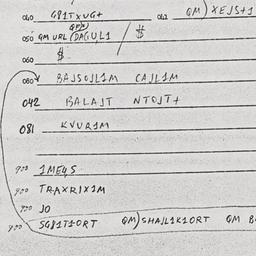 060 G81TXUG+ 062 QM) XEJS+1
GP/2
050 QM URL (DAGUL1 / $
060 $
080 BAJSOJL1M CAJL1M
042 BALAJT NTOJT+
081 KVUR1M
900 1ME4S
900 TRAXRIX1M
900 JO
900 SG81T1ORT QM) SHAJL1K1ORT QM